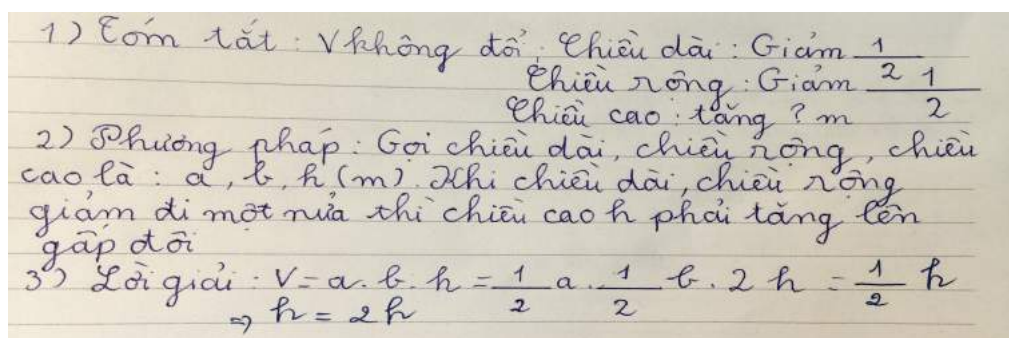 1) Tóm tắt : V không đổi ; Chiều dài : Giảm 1/2
Chiều rộng : Giảm 1/2
Chiều cao : tăng ? m
2) Phương pháp : Gọi chiều dài, chiều rộng, chiều
cao là : a, b, h (m). Khi chiều dài, chiều rộng
giảm đi một nửa thì chiều cao h phải tăng lên
gấp đôi
3) Lời giải : V = a. b. h = 1/2 a. 1/2 b. 2 h = 1/2 h
⇒ h = 2 h